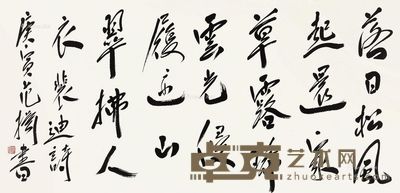 落日松風
起還家
草露晞
雲光侵
履迹山
翠拂人
衣裴迪詩
庚寅范揚書
艺术网